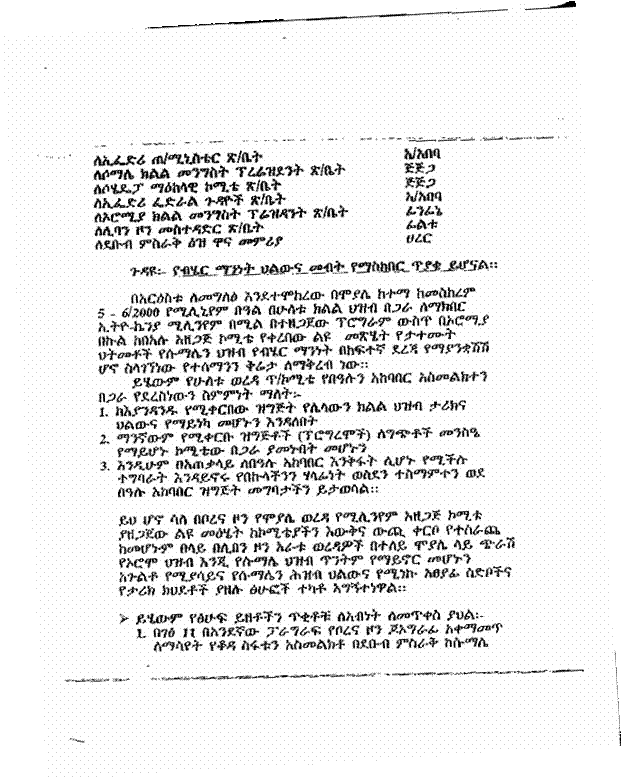 ለኢፌድሪ ጠ/ሚኒስቴር ጽ/ቤት አ/አበባ
ለሶማሌ ክልል መንግስት ፕሬዝዳንት ጽ/ቤት ጅጅጋ
ለሶህዴፓ ማዕከላዊ ኮሚቴ ጽ/ቤት ጅጅጋ
ለኢፌድሪ ፌድራል ጉዳዮች ጽ/ቤት አ/አበባ
ለኦሮሚያ ክልል መንግስት ፕሬዝዳንት ጽ/ቤት ፊንፊኔ
ለሊባን ዞን መስተዳድር ጽ/ቤት ፊልቱ
ለደቡብ ምስራቅ ዕዝ ዋና መምሪያ ሀረር
ጉዳዩ:- የብሄር ማንነት ህልውና መብት የማስከበር ጥያቄ ይሆናል።
በአርዕስቱ ለመግለፅ እንደተሞከረው በሞያሌ ከተማ ከመስከረም
5 - 6/2000 የሚሊኒየም በዓል በሁለቱ ክልል ህዝብ በጋራ ለማክበር
ኢትዮ-ኬንያ ሚሊንየም በሚል በተዘጋጀው ፕሮግራም ውስጥ በኦሮሚያ
በኩል ከበአሉ አዘጋጅ ኮሚቴ የቀረበው ልዩ መጽሄት የታተሙት
ህትመቶች የሱማሌን ህዝብ የብሄር ማንነት በከፍተኛ ደረጃ የማያንቋሽሽ
ሆኖ ስላገኘነው የተሰማንን ቅሬታ ለማቅረብ ነው።
ይሄውም የሁለቱ ወረዳ ጥ/ኮሚቴ የበዓሉን አከባበር አስመልክተን
በጋራ የደረስነውን ስምምነት ማለት:-
1. ከእያንዳንዱ የሚቀርበው ዝግጅት የሌላውን ክልል ህዝብ ታሪክና
ህልውና የማይነካ መሆኑን እንዳለበት
2. ማንኛውም የሚቀርቡ ዝግጅቶች (ፕሮግረሞች) ለግጭቶች መንስዔ
የማይሆኑ ኮሚቴው በጋራ ያመኑበት መሆኑን
3. እንዲሁም በአጠቃላይ ለበዓሉ አከባበር እንቅፋት ሊሆኑ የሚችሉ
ተግባራት እንዳይኖሩ የበኩላችንን ሃላፊነት ወስደን ተስማምተን ወደ
በዓሉ አከባበር ዝግጅት መግባታችን ይታወሳል።
ይህ ሆኖ ሳለ በቦረና ዞን የሞያሌ ወረዳ የሚሊንየም አዘጋጅ ኮሚቴ
ያዘጋጀው ልዩ መፅሄት ከኮሚቴያችን እውቅና ውጪ ቀርቦ የተሰራጨ
ከመሆኑም በላይ በሊበን ዞን አራቱ ወረዳዎች በተለይ ሞያሌ ላይ ጭራሽ
የኦሮሞ ህዝብ እንጂ የሱማሌ ህዝብ ጥንትም የማይኖር መሆኑን
አጉልቶ የሚያሳይና የሱማሌን ሕዝብ ህልውና የሚነኩ አፀያፊ ስድቦችና
የታሪክ ክህደቶች ያዘሉ ፅሁፎች ተካቶ አግኝተነዋል።
➢ ይሄውም የፅሁፍ ይዘቶችን ጥቂቶቹ ለአብነት ለመጥቀስ ያህል:-
1. በገፅ 11 በአንደኛው ፓራግራፍ የቦረና ዞን ጆኦግራፊ አቀማመጥ
ለማሳየት የቆዳ ስፋቱን አስመልክቶ በደቡብ ምስራቅ ከሱማሌ